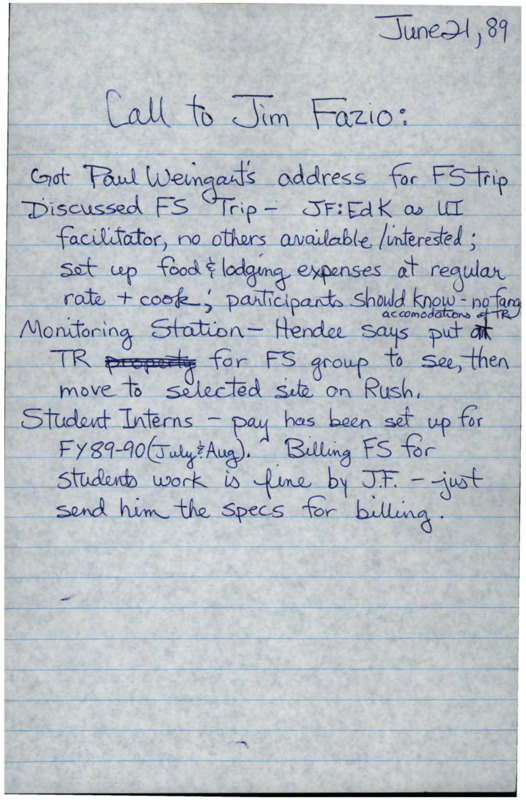 June 21, 89
Call to Jim Fazio:
Got Paul Weingart's address for FS trip
Discussed FS Trip – JF: Ed K as UI
facilitator, no others available/interested;
set up food & lodging expenses at regular
rate + cook; participants should know – no fancy
accomodations at TR
Monitoring Station – Hendee says put at
TR property for FS group to see, then
move to selected site on Rush.
Student Interns – pay has been set up for
FY89-90 (July & Aug). Billing FS for
students work is fine by J.F. – just
send him the specs for billing.